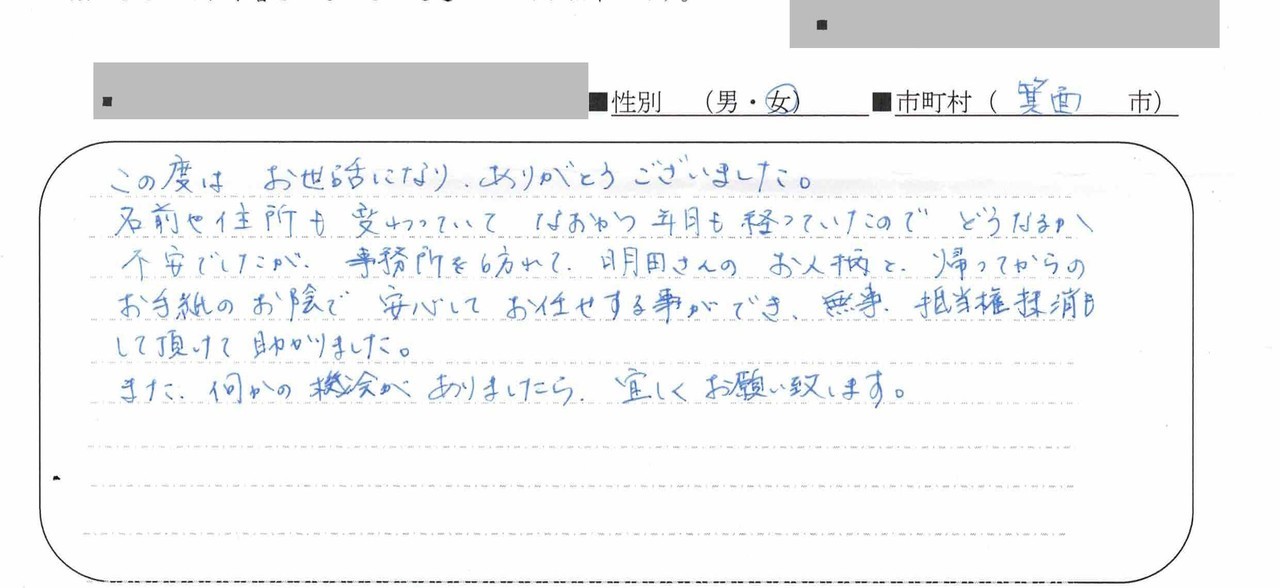 ■性別 （男・女） ■市町村（ 箕面 市）
この度は お世話になり、ありがとうございました。
名前や住所も変わっていて なおかつ年月も経っていたので どうなるか
不安でしたが、事務所を訪れて、明田さんの お人柄と、帰ってからの
お手紙のお陰で 安心して お任せする事ができ、無事、抵当権抹消も
して頂けて 助かりました。
また、何かの機会が ありましたら、宜しくお願い致します。